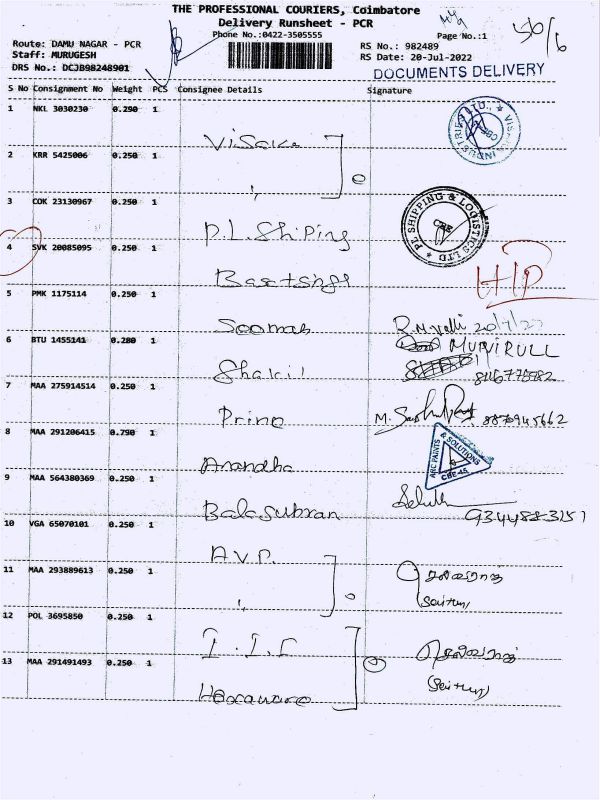 THE PROFESSIONAL COURIERS, Coimbatore
Delivery Runsheet - PCR
Phone No.:0422-3505555
Page No.:1
50/6
Route: DAMU NAGAR - PCR
Staff: MURUGESH
DRS No.: DCJB98248901
RS No.: 982489
RS Date: 20-Jul-2022
DOCUMENTS DELIVERY
S No Consignment No Weight PCS Consignee Details Signature
1 NKL 3030230 0.290 1
Visaka
2 KRR 5425006 0.250 1
"
3 COK 23130967 0.250 1
P.L. Shiping
PL SHIPPING & LOGISTICS LTD
CBE
4 SVK 20085095 0.250 1
HIP
5 PMK 1175114 0.250 1
R.M Valli 20/7/22
6 BTU 1455141 0.280 1
Shakil
7 MAA 275914514 0.250 1
Prino
M.
8870945662
8 MAA 291206415 0.790 1
Anandha
ARC PAINTS & SOLUTIONS
CBE-45
9 MAA 564380369 0.250 1
Balasubran
10 VGA 65070101 0.250 1
A.V.P.
11 MAA 293889613 0.250 1
"
12 POL 3695850 0.250 1
13 MAA 291491493 0.250 1
Hexaware